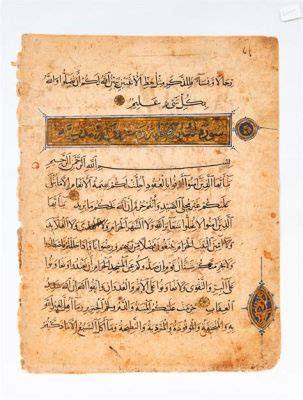 رجالا ونساء فللذكر مثل حظ الانثيين يبين الله لكم ان تضلوا والله
بكل شىء عليم
سورة المائدة
بسم الله الرحمن الرحيم
يا ايها الذين آمنوا اوفوا بالعقود احلت لكم بهيمة الانعام الا ما يتلى
عليكم غير محلى الصيد وانتم حرم ان الله يحكم ما يريد يا ايها
الذين آمنوا لا تحلوا شعائر الله ولا الشهر الحرام ولا الهدى ولا القلائد
ولا آمين البيت الحرام يبتغون فضلا من ربهم ورضوانا واذا حللتم فاصطادوا
ولا يجرمنكم شنآن قوم ان صدوكم عن المسجد الحرام ان تعتدوا وتعاونوا
على البر والتقوى ولا تعاونوا على الاثم والعدوان واتقوا الله ان الله شديد
العقاب حرمت عليكم الميتة والدم ولحم الخنزير وما اهل لغير الله
به والمنخنقة والموقوذة والمتردية والنطيحة وما اكل السبع الا ما ذكيتم